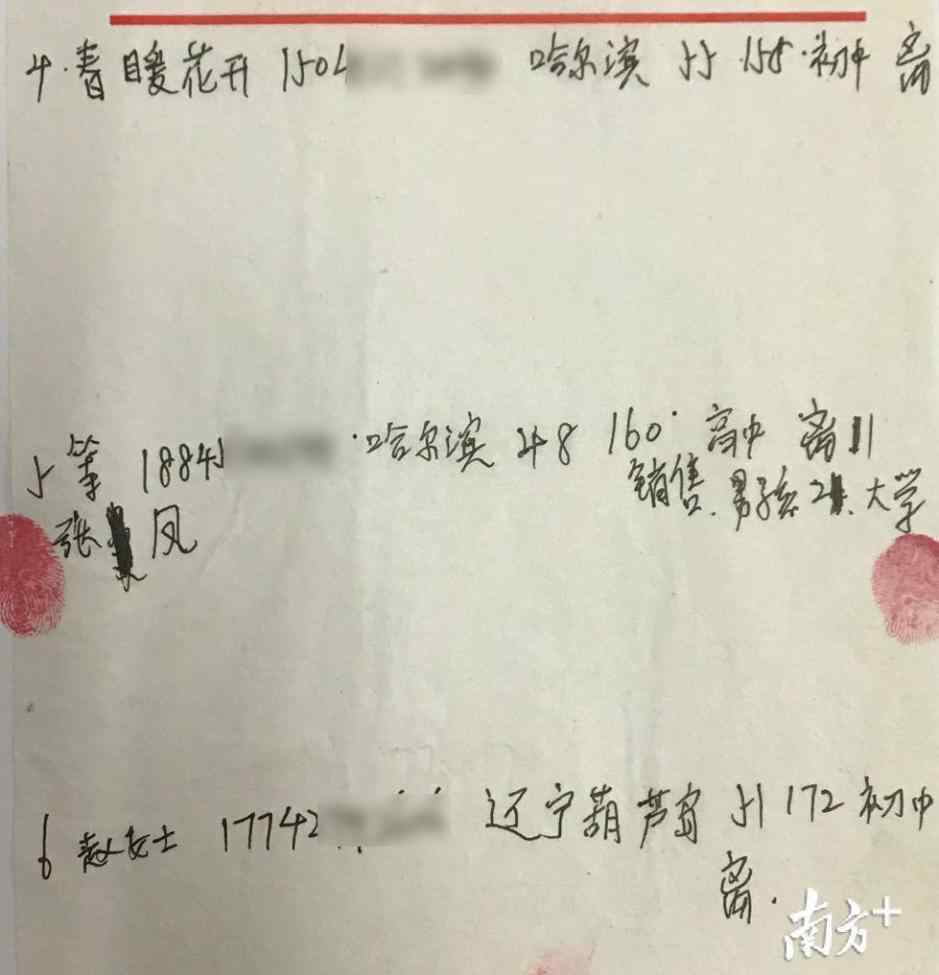 4.春暖花开 150 哈尔滨 55 .158.初中 离
5 等 1884 哈尔滨 48 160 高中 离 11
销售.男孩 21.大学
张 凤
6 赵女士 17742 辽宁葫芦岛 51 172 初中
离.
南方+